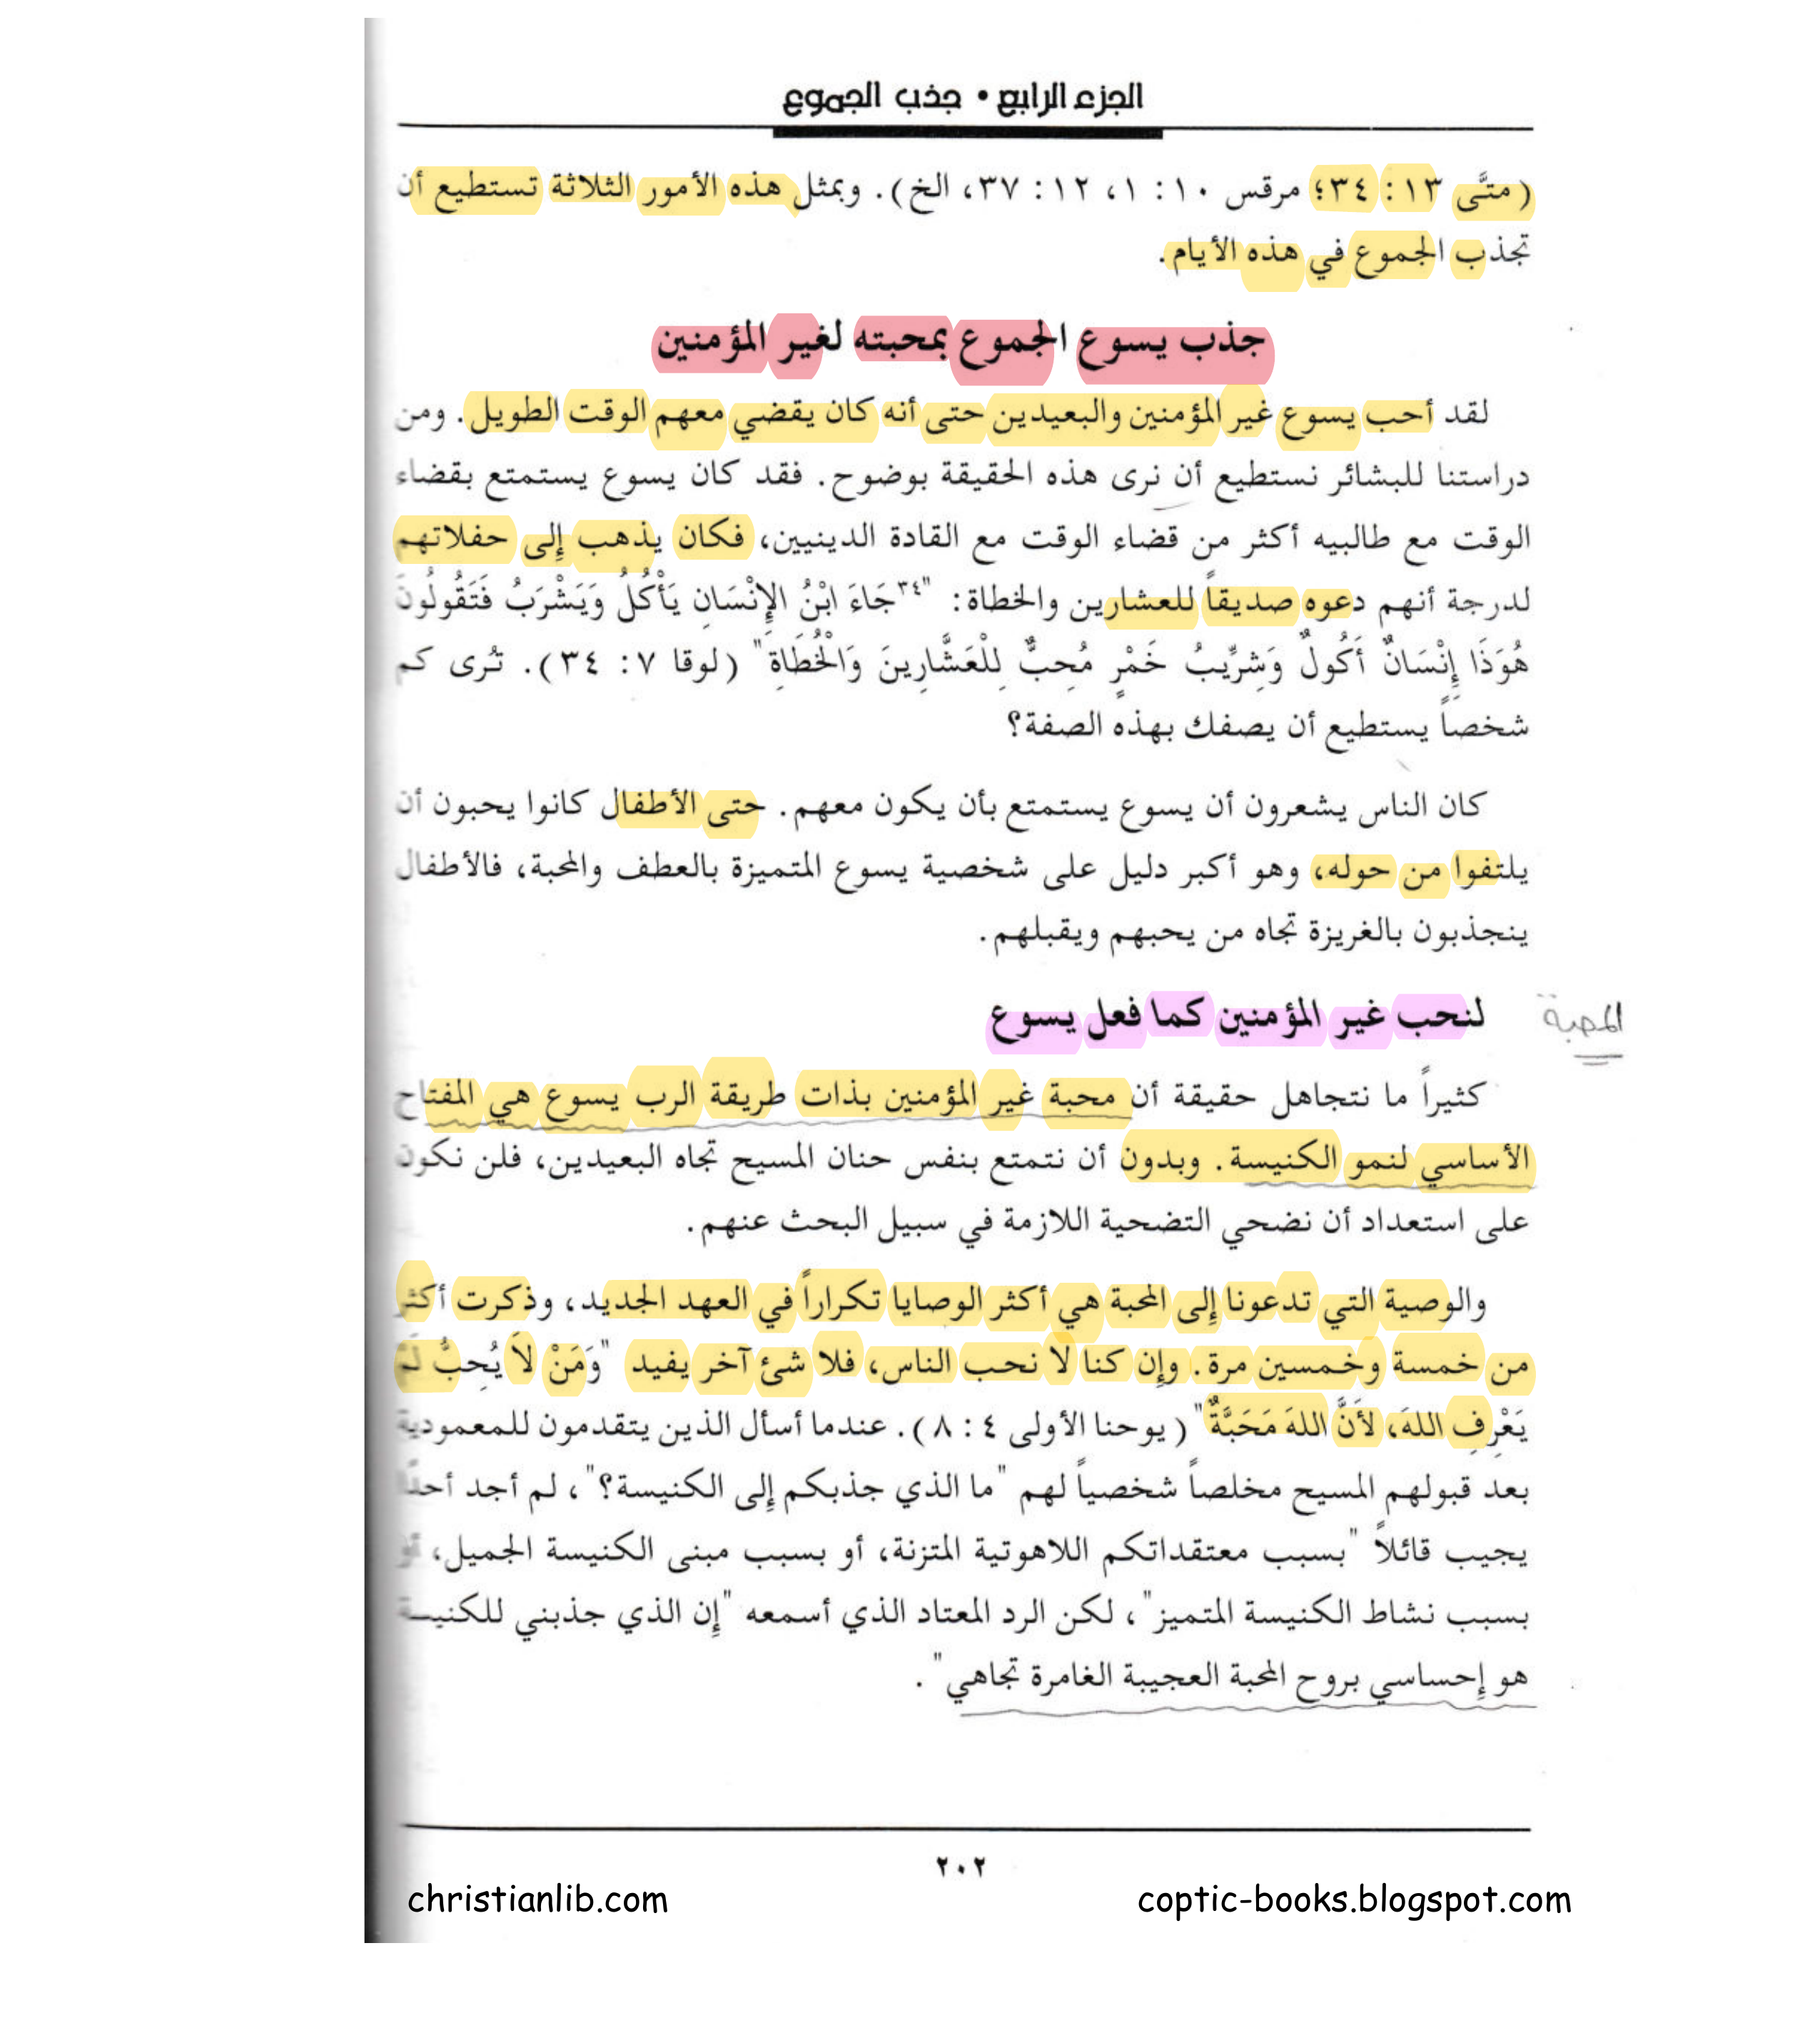 الجزء الرابع • جذب الجموع
(متَّى ١٣: ٣٤؛ مرقس ١٠: ١، ١٢: ٣٧، الخ). وبمثل هذه الأمور الثلاثة تستطيع أن
تجذب الجموع في هذه الأيام.
جذب يسوع الجموع بمحبته لغير المؤمنين
لقد أحب يسوع غير المؤمنين والبعيدين حتى أنه كان يقضي معهم الوقت الطويل. ومن
دراستنا للبشائر نستطيع أن نرى هذه الحقيقة بوضوح. فقد كان يسوع يستمتع بقضاء
الوقت مع طالبيه أكثر من قضاء الوقت مع القادة الدينيين، فكان يذهب إلى حفلاتهم
لدرجة أنهم دعوه صديقاً للعشارين والخطاة: "٣٤جَاءَ ابْنُ الإِنْسَانِ يَأْكُلُ وَيَشْرَبُ فَتَقُولُونَ
هُوَذَا إِنْسَانٌ أَكُولٌ وَشِرِّيبُ خَمْرٍ مُحِبٌّ لِلْعَشَّارِينَ وَالْخُطَاةِ" (لوقا ٧: ٣٤). تُرى كم
شخصاً يستطيع أن يصفك بهذه الصفة؟
كان الناس يشعرون أن يسوع يستمتع بأن يكون معهم. حتى الأطفال كانوا يحبون أن
يلتفوا من حوله، وهو أكبر دليل على شخصية يسوع المتميزة بالعطف والمحبة، فالأطفال
ينجذبون بالغريزة تجاه من يحبهم ويقبلهم.
لنحب غير المؤمنين كما فعل يسوع
المحبة
كثيراً ما نتجاهل حقيقة أن محبة غير المؤمنين بذات طريقة الرب يسوع هي المفتاح
الأساسي لنمو الكنيسة. وبدون أن نتمتع بنفس حنان المسيح تجاه البعيدين، فلن نكون
على استعداد أن نضحي التضحية اللازمة في سبيل البحث عنهم.
والوصية التي تدعونا إلى المحبة هي أكثر الوصايا تكراراً في العهد الجديد، وذكرت أكثر
من خمسة وخمسين مرة. وإن كنا لا نحب الناس، فلا شئ آخر يفيد "وَمَنْ لاَ يُحِبُّ لَمْ
يَعْرِفِ اللهَ، لأَنَّ اللهَ مَحَبَّةٌ" (يوحنا الأولى ٤: ٨). عندما أسأل الذين يتقدمون للمعمودية
بعد قبولهم المسيح مخلصاً شخصياً لهم "ما الذي جذبكم إلى الكنيسة؟"، لم أجد أحدًا
يجيب قائلاً "بسبب معتقداتكم اللاهوتية المتزنة، أو بسبب مبنى الكنيسة الجميل، أو
بسبب نشاط الكنيسة المتميز"، لكن الرد المعتاد الذي أسمعه "إن الذي جذبني للكنيسة
هو إحساسي بروح المحبة العجيبة الغامرة تجاهي".
٢٠٢
christianlib.com
coptic-books.blogspot.com